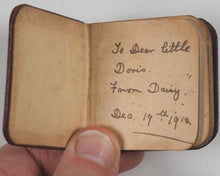 To Dear little
Doris.
From Daisy.
Dec. 19th 1912